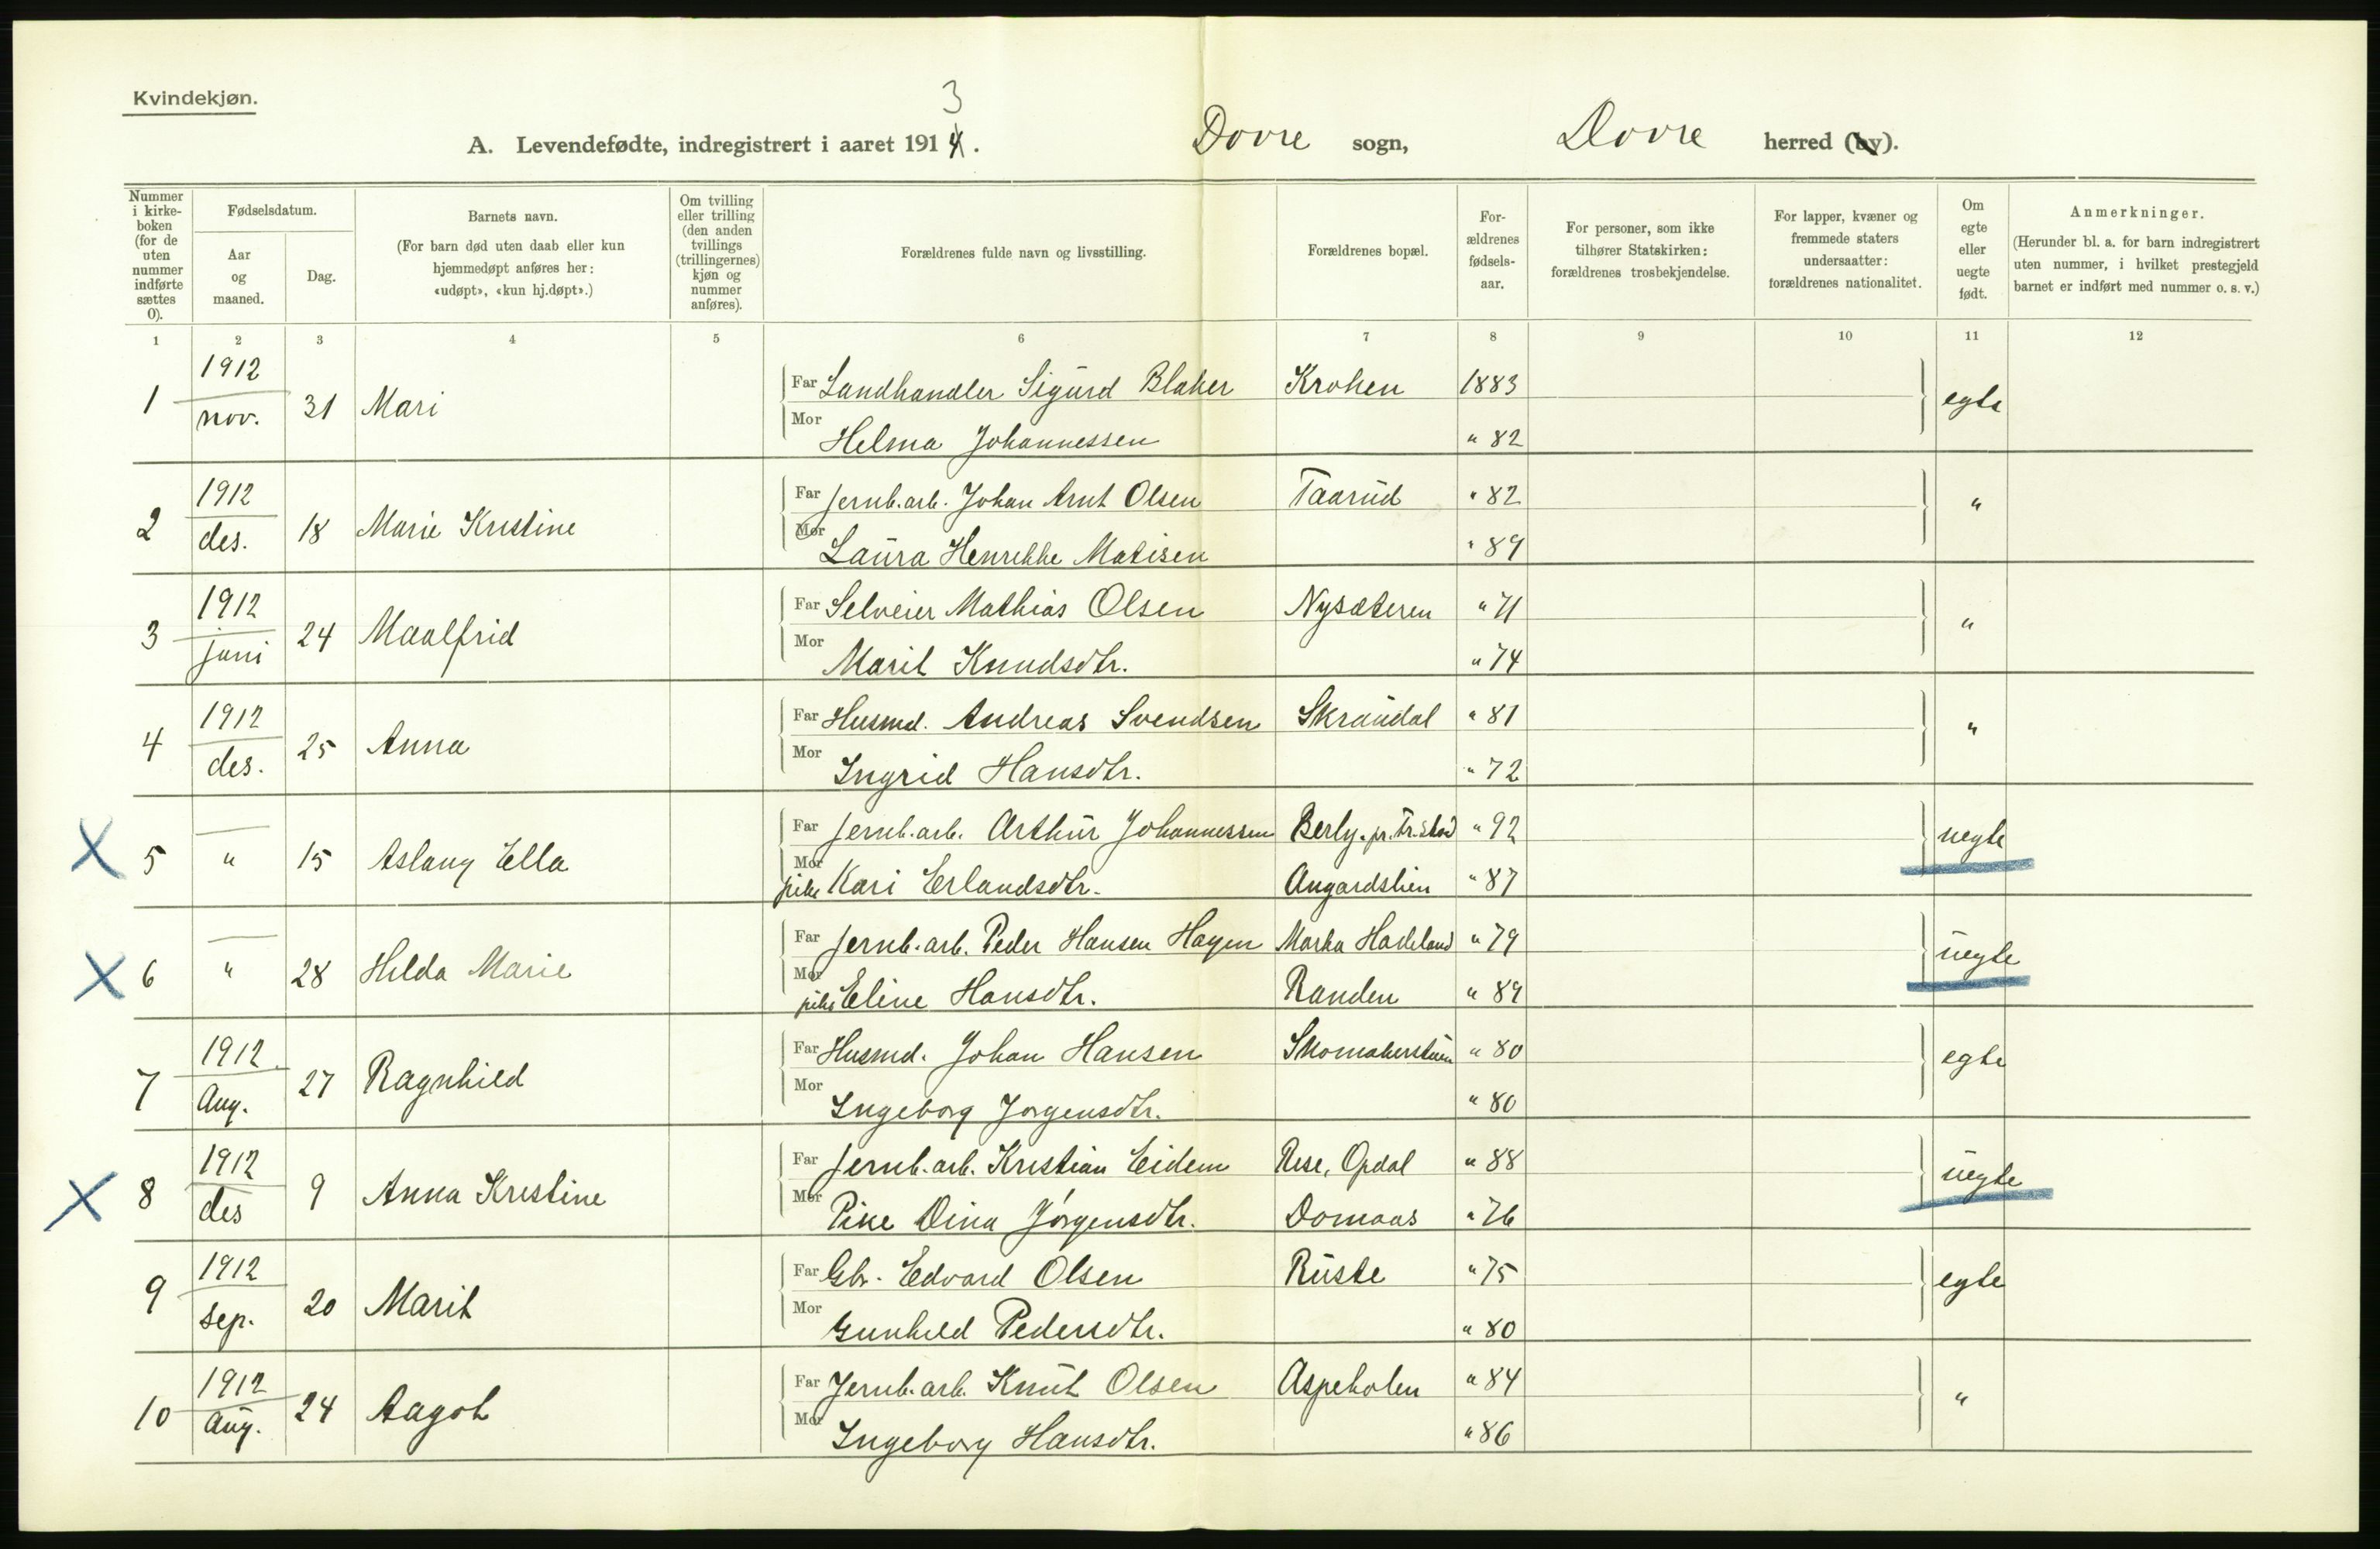 Kvindekjøn.
3
A. Levendefødte, indregistrert i aaret 1914. Dovre sogn, Dovre herred (by).
Nummer i kirke-boken (for de uten nummer indførte sættes 0).
Fødselsdatum.
Aar og maaned.
Dag.
Barnets navn.
(For barn død uten daab eller kun hjemmedøpt anføres her: «udøpt», «kun hj.døpt».)
Om tvilling eller trilling (den anden tvillings (trillingernes) kjøn og nummer anføres).
Forældrenes fulde navn og livsstilling.
Forældrenes bopæl.
For-ældrenes fødsels-aar.
For personer, som ikke tilhører Statskirken: forældrenes trosbekjendelse.
For lapper, kvæner og fremmede staters undersaatter: forældrenes nationalitet.
Om egte eller uegte født.
Anmerkninger.
(Herunder bl. a. for barn indregistrert uten nummer, i hvilket prestegjeld barnet er indført med nummer o. s. v.)
1 2 3 4 5 6 7 8 9 10 11 12
1 1912 nov. 31 Mari Far Landhandler Sigurd Blaker Krohen 1883 egte
Mor Helma Johannessen " 82
2 1912 des. 18 Marie Kristine Far Jernb.arb. Johan Arnt Olsen Taarud " 82 "
Mor Laura Henrikke Matisen " 89
3 1912 juni 24 Maalfrid Far Selveier Mathias Olsen Nysæteren " 71 "
Mor Marit Knudsdtr. " 74
4 1912 des. 25 Anna Far Husmd. Andreas Svendsen Skraudal " 81 "
Mor Ingrid Hansdtr. " 72
X 5 " 15 Aslaug Ella Far Jernb.arb. Arthur Johannessen Berly. pr. Fr.stad " 92 uegte
Mor pike Kari Erlandsdtr. Angardslien " 87
X 6 " 28 Hilda Marie Far Jernb.arb. Peder Hansen Hagen Marka Hadeland " 79 uegte
Mor pike Eline Hansdtr. Randen " 89
7 1912 Aug. 27 Ragnhild Far Husmd. Johan Hansen Skomakerstuen " 80 egte
Mor Ingeborg Jorgensdtr. " 80
X 8 1912 des 9 Anna Kristine Far Jernb.arb. Kristian Eidem Rise, Opdal " 88 uegte
Mor Pike Dina Jörgensdtr. Domaas " 76
9 1912 sep. 20 Marit Far Gbr. Edvard Olsen Ruste " 75 egte
Mor Gunhild Pedersdtr. " 80
10 1912 Aug. 24 Aagot Far Jernb.arb. Knut Olsen Aspeholen " 84 "
Mor Ingeborg Hansdtr. " 86